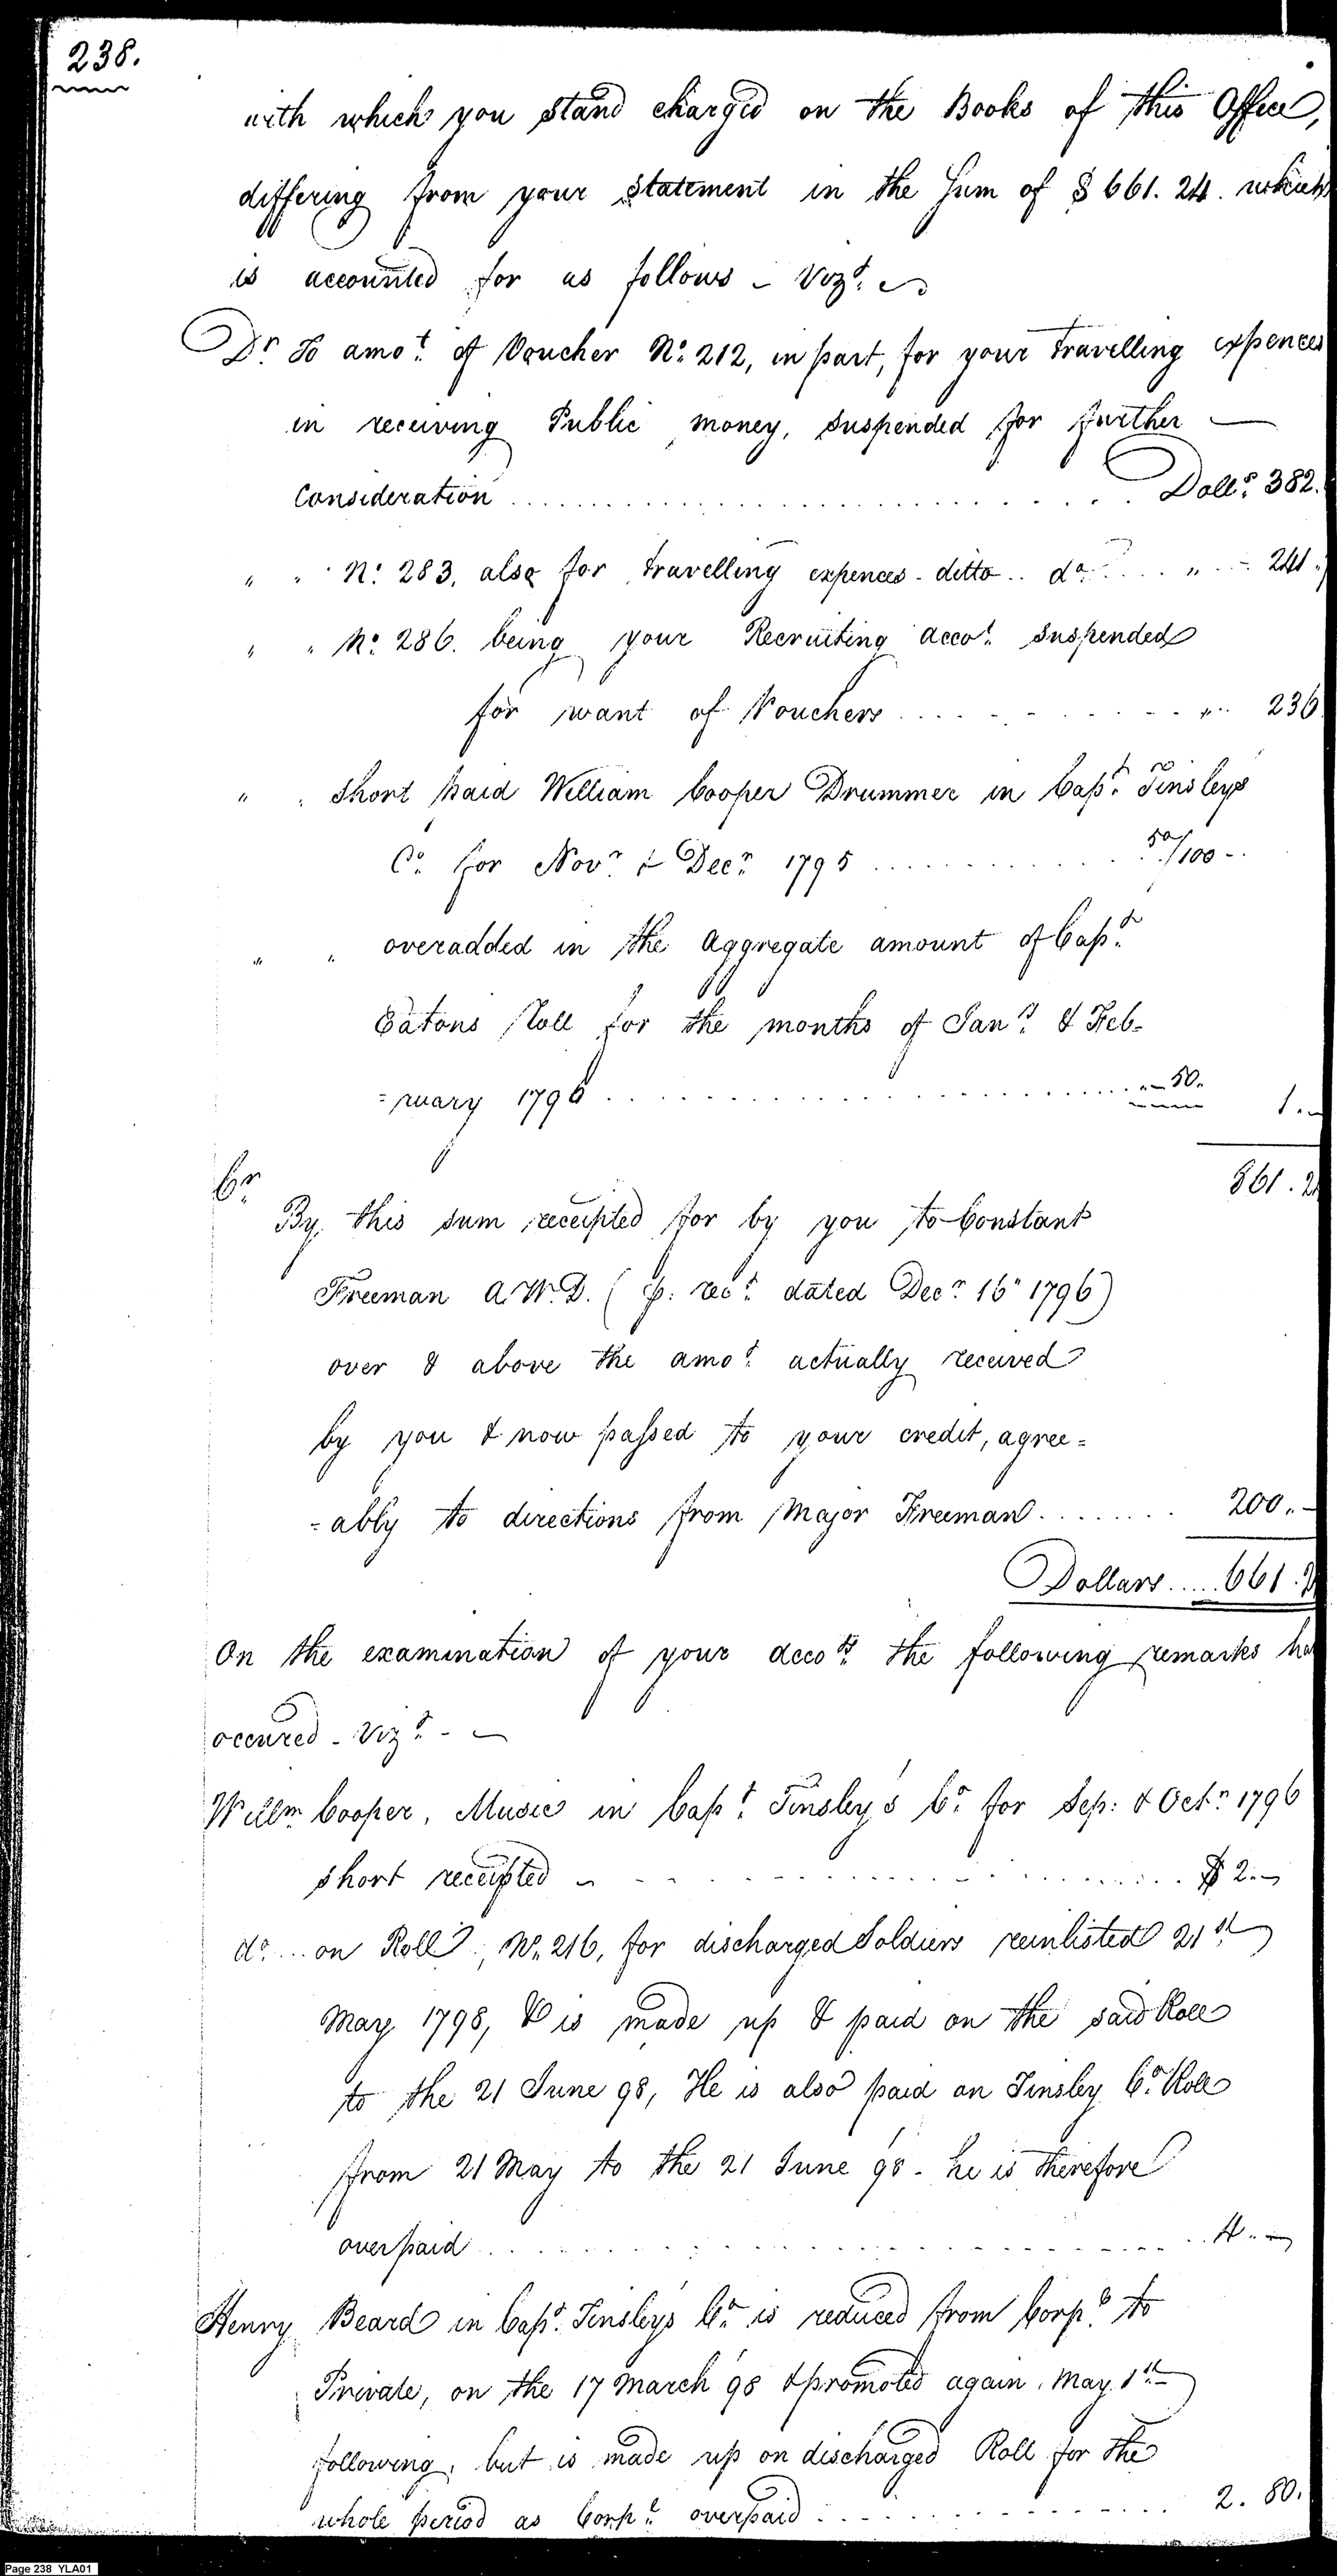 238.
with which you stand charged on the Books of this Office,
differing from your Statement in the Sum of $ 661. 24. which
is accounted for as follows - Vizt.
Dr. To amot. of Voucher No. 212, in part, for your travelling expences
in receiving Public money, suspended for further
Consideration . . . . . . . . . . Dolls. 382.
" " No. 283, also for travelling expences - ditto .. do. . . . " . . 241.
" " No. 286. being your Recruiting accot. suspended
for want of Vouchers . . . . . . . . . . " . . 236
" " Short paid William Cooper Drummer in Capt. Tinsleys
Co. for Novr. & Decr. 1795 . . . . . . . . . . 50/100 -
" " overadded in the Aggregate amount of Capt.
Eatons Roll for the months of Jany. & Feb-
=ruary 1796 . . . . . . . . . . " - 50.
1. -
861. 2
Cr.
By this sum receipted for by you to Constant
Freeman A.W.D. ( p. rect. dated Decr. 16" 1796)
over & above the amot. actually received
by you & now passed to your credit, agree=
=ably to directions from Major Freeman . . . . . . . . 200. -
Dollars . . . . . 661. 2
On the examination of your accots. the following remarks ha
occured - Vizt. -
Willm Cooper, Music in Capt. Tinsley's Co. for Sep: & Octr. 1796
short receipted - . . . . . . . . . . $ 2. -
do. .. on Roll, No. 216, for discharged Soldiers reinlisted 21st.
May 1798, & is made up & paid on the said Roll
to the 21 June 98, He is also paid on Tinsley Co. Roll
from 21 May to the 21 June 98 - he is therefore
overpaid . . . . . . . . . . 4. -
Henry Beard in Capt. Tinsleys Co. is reduced from Corpl. to
Private, on the 17 March 98 & promoted again May 1st.
following, but is made up on discharged Roll for the
whole period as Corpl. overpaid . . . . . . . . . . 2. 80.
Page 238 YLA01